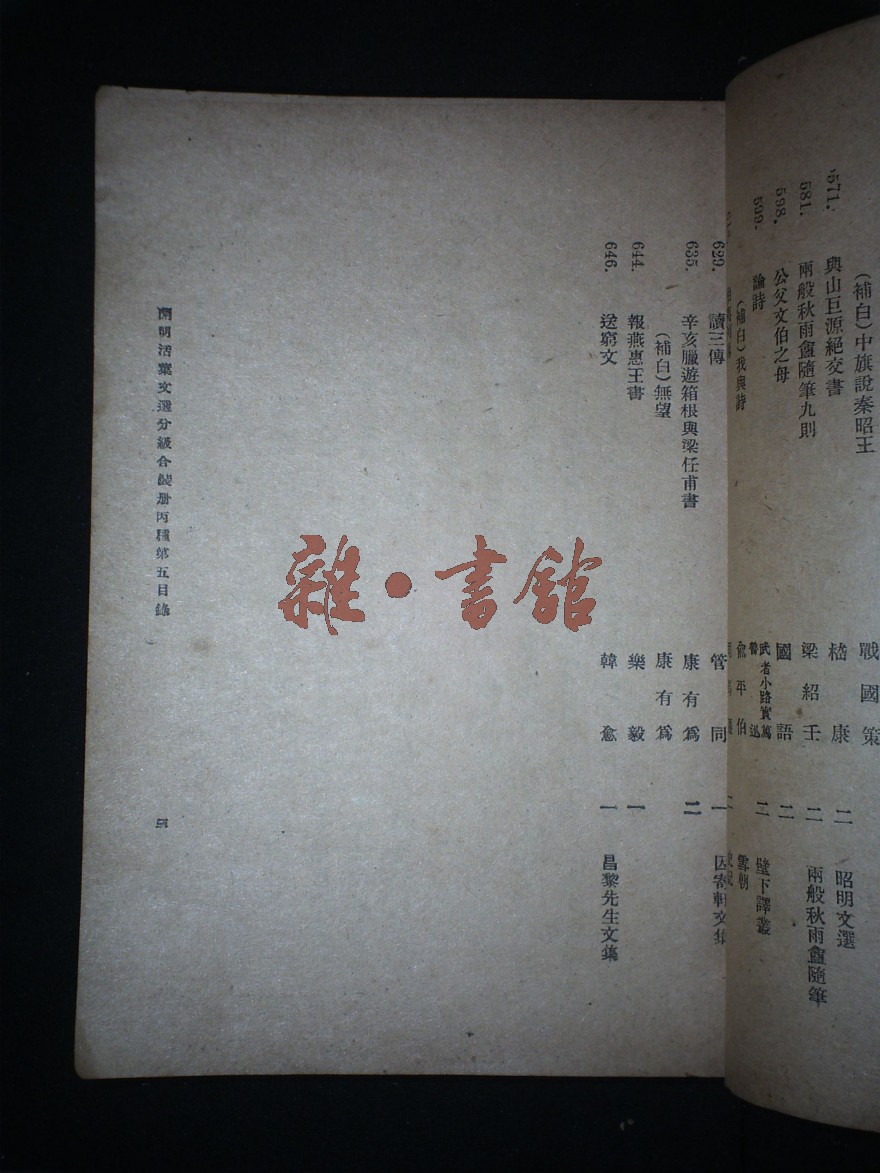 （補白）中旗說秦昭王　戰國策
571.　與山巨源絕交書　嵇康　二　昭明文選
581.　兩般秋雨盦隨筆九則　梁紹壬　二　兩般秋雨盦隨筆
598.　公父文伯之母　國語　二
599.　論詩　武者小路實篤　魯迅　二　壁下譯叢
（補白）我與詩　俞平伯　雪朝
629.　讀三傳　管同　一　因寄軒文集
635.　辛亥臘遊箱根與梁任甫書　康有爲　二
（補白）無望　康有爲
644.　報燕惠王書　樂毅　一
646.　送窮文　韓愈　一　昌黎先生文集
開明活葉文選分級合裝册丙種第五目錄　五
雜·書館